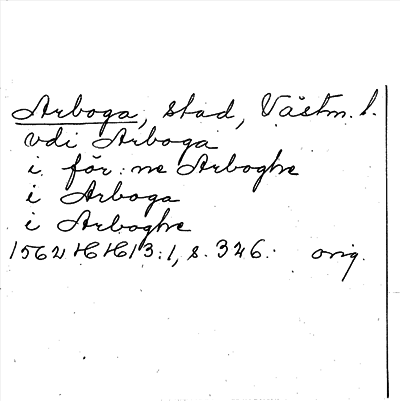 Arboga, stad, Västm. l.
vdi Arboga
i för:ne Arboghe
i Arboga
i Arboghe
1562 HH 13:1, s. 326. orig.